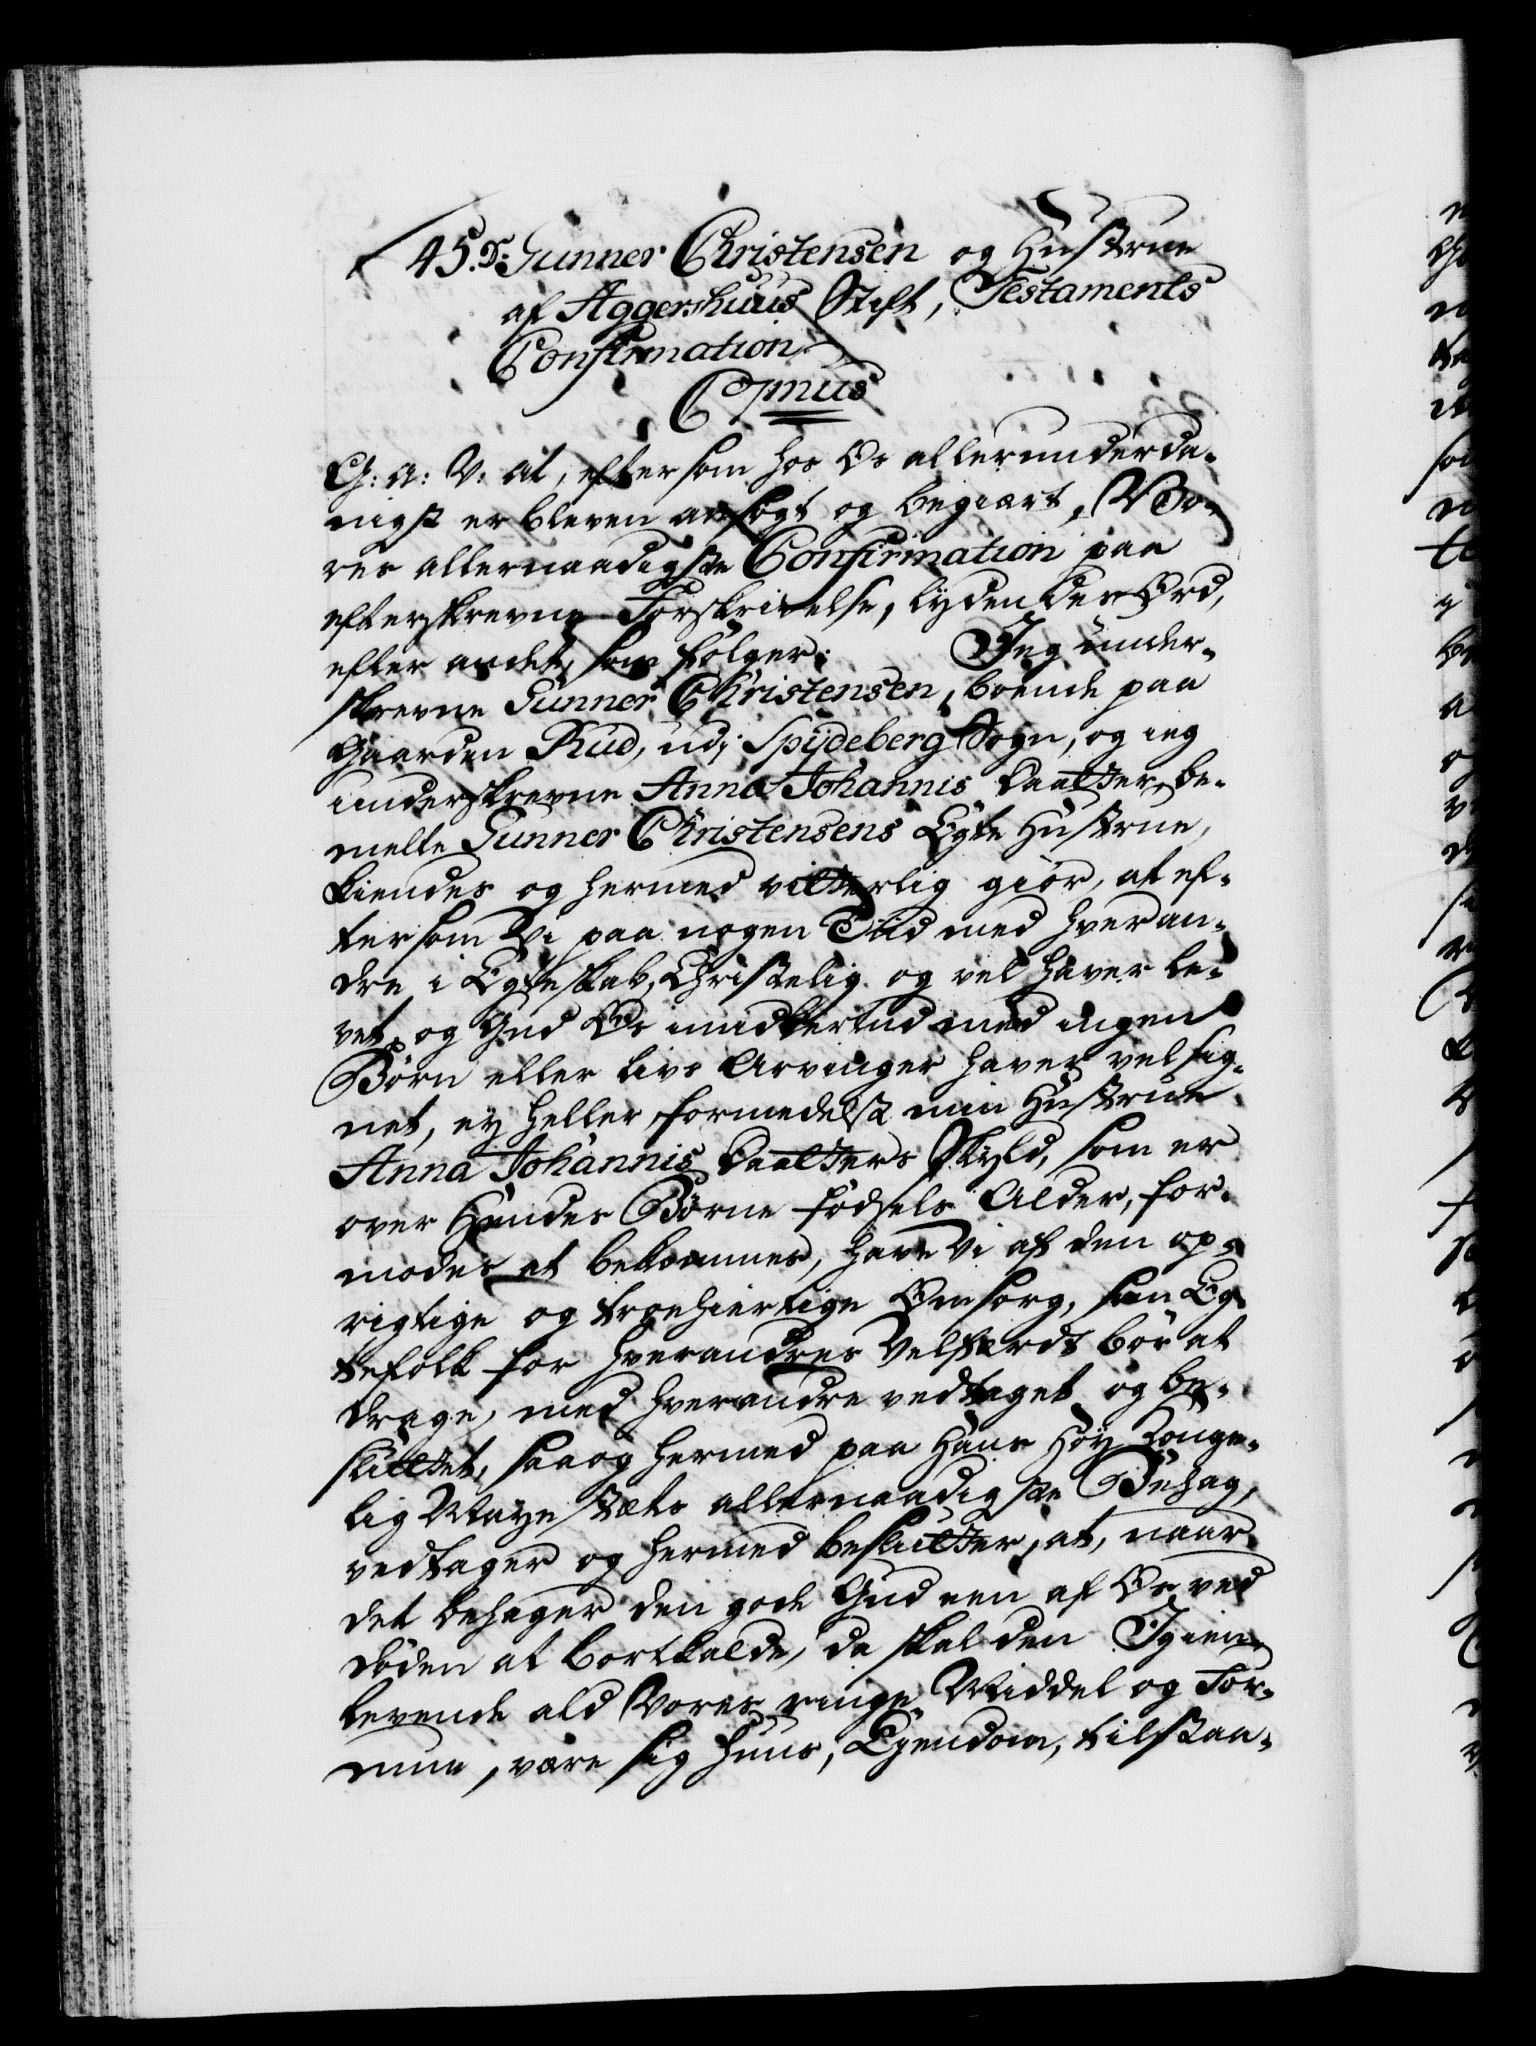 45. Gunner Christensen og Hustrue
af Aggershuus Stift, Testaments
Confirmation
C 7mus
G: A: V: at, eftersom hos Os allerunderda-
nigst er bleven ansøgt og begiært, Vo-
res allernaadigste Confirmation paa
efterskrevne Forskrivelse, lydende Ord,
efter andet, som følger: Jeg under-
skrevne Gunner Christensen, boende paa
Gaarden Rud, udj Spydeberg Sogn, og ieg
underskrevne Anna Johannis Daatter, be-
melte Gunner Christensens Egte Hustrue,
kiendes og hermed vitterlig giør, at ef-
tersom Vi paa nogen Tiid med hveran-
dre i Egteskab, Christelig og vel haver le-
vet, og Gud Os imidlertid med ingen
Børn eller livs Arvinger haver velsig-
net, ey heller formedelst min Hustrue
Anna Johannis Daatters Skyld, som er
over Hendes Børne fødsels Alder, for-
modes at bekomme, have Vi af den op-
rigtige og troehiertige Omsorg, som Eg-
tefolk for hverandres Velfærdt bør at
drage, med hverandre vedtaget og be-
sluttet, saa og hermed paa Hans Høy Konge-
lig Mayestæts allernaadigste Behag,
vedtager og hermed beslutter, at, naar
det behager den gode Gud een af Os ved
døden at bortkalde, da skal den Igien-
levende ald Vores ringe Middel og For-
mue, være sig Huus, Eyendom, tilstaa-